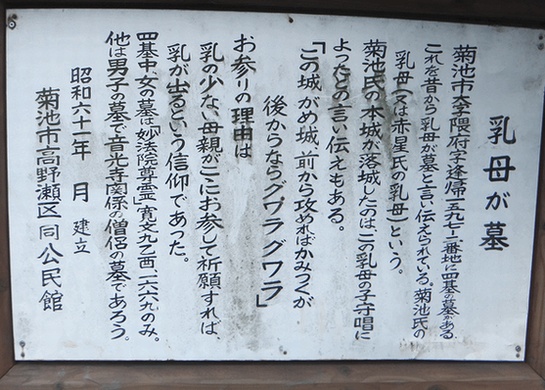 乳母が墓
菊池市大字隈府字逢帰一五九七ー二番地に四基の墓がある
これを昔から乳母が墓と言い伝えられている。菊池氏の
乳母(又は赤星氏の乳母)という。
菊池氏の本城が落城したのは、この乳母の子守唱に
よったとの言い伝えもある。
「この城がめ城、前から攻めればかみつくが
後からならグワラグワラ」
お参りの理由は
乳の少ない母親がここにお参して祈願すれば、
乳が出るという信仰であった。
四基中女の墓は「妙法院尊霊」寛文九乙酉、一六六九のみ。
他は男子の墓で音光寺関係の僧侶の墓であろう。
昭和六十一年 月 建立
菊池市高野瀬区同公民館